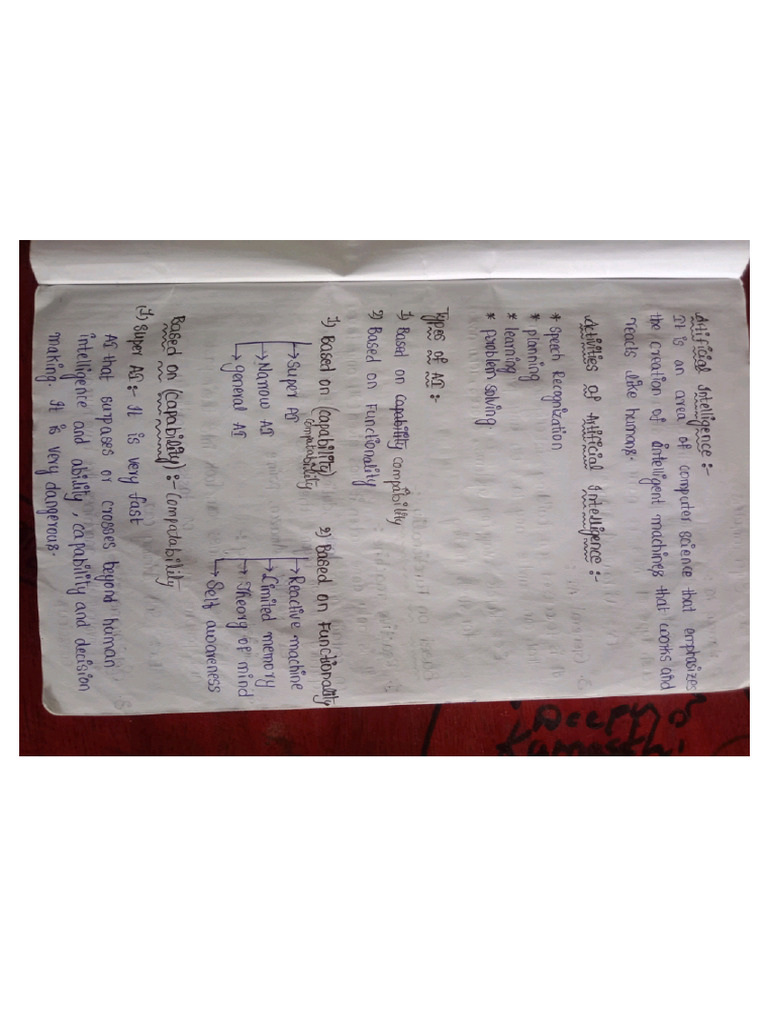 Artificial Intelligence :-
It is an area of computer science that emphasizes
the creation of intelligent machines that works and
reacts like humans.
Activities of Artificial Intelligence :-
* Speech Recognization
* planning
* learning
* problem solving
Types of AI :-
1) Based on capability compibility
2) Based on Functionality
1) Based on (capability) 2) Based on Functionality
compatability
→ Super AI → Reactive machine
→ Narrow AI → Limited memory
→ general AI → Theory of mind
→ Self awareness
Based on (capability) :- compatability
(1) Super AI :- It is very fast
AI that surpases or crosses beyond human
intelligence and ability, capability and decision
making. It is very dangerous.